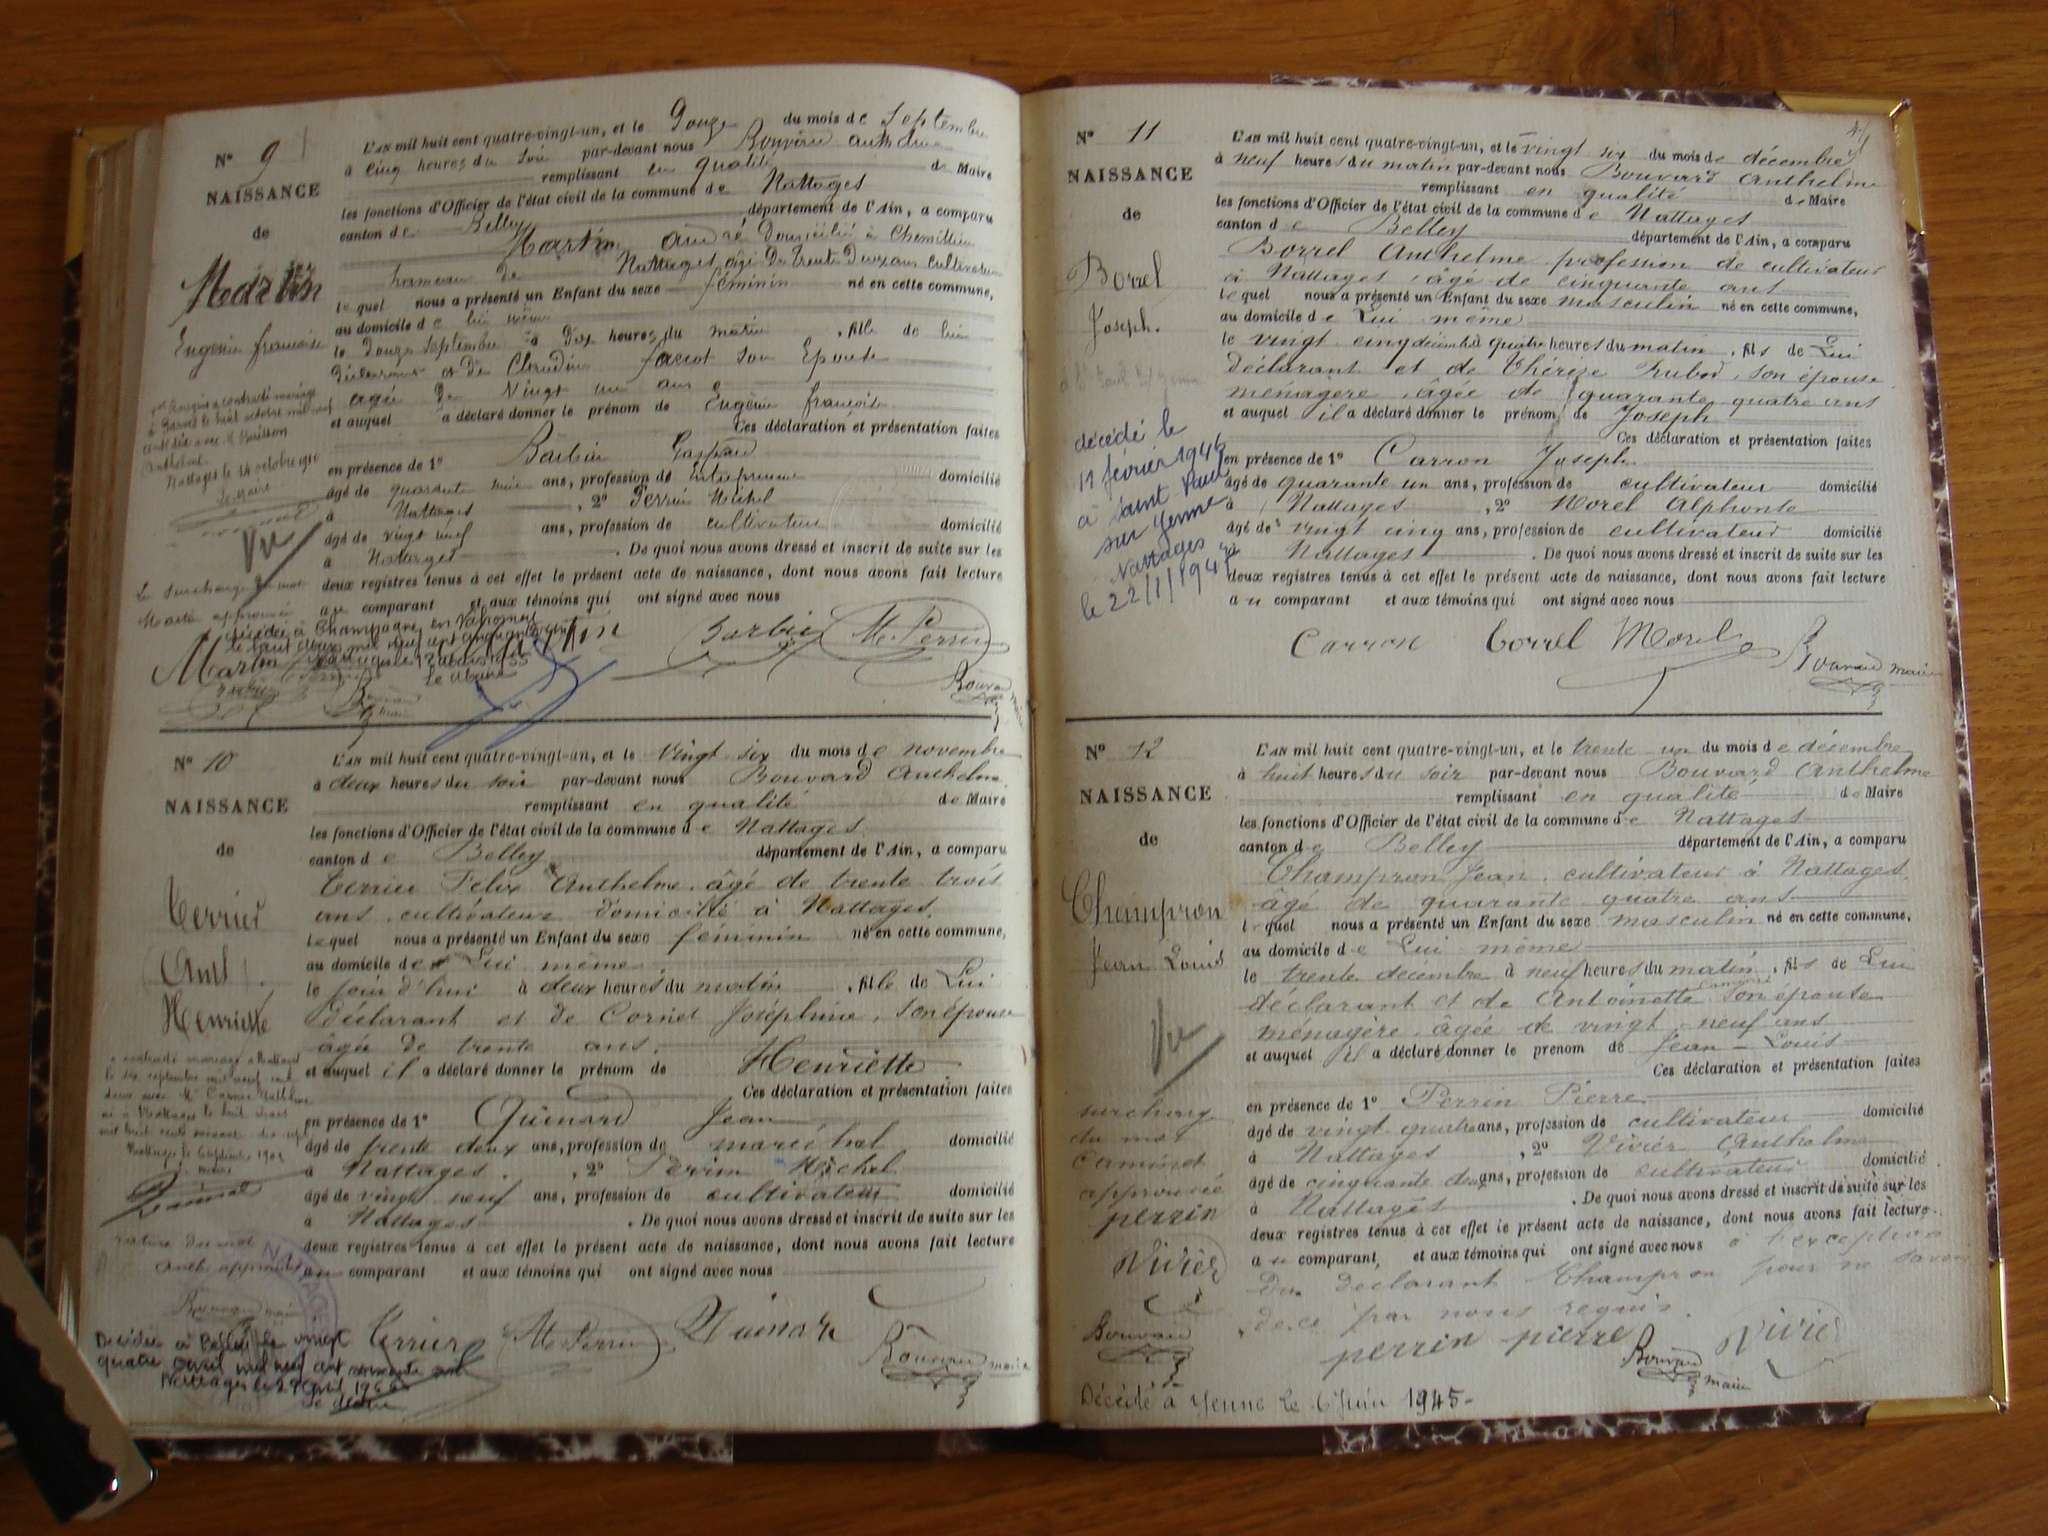 N° 9
NAISSANCE
de
Martin
Eugénie françoise
L'AN mil huit cent quatre-vingt-un, et le Douze du mois de Septembre
à cinq heures du soir par-devant nous Bouvard anthelme
remplissant en qualité de Maire
les fonctions d'Officier de l'état civil de la commune de Nattages
canton de Belley département de l'Ain, a comparu
Martin andré Domicilié à Chemillieu
hameau de Nattages, agé De trente Deux ans cultivateur
lequel nous a présenté un Enfant du sexe féminin né en cette commune,
au domicile de lui même
le Douze Septembre à Dix heures du matin, fille de lui
déclarant et de Claudine son Epouse
agée de Vingt un ans
et auquel a déclaré donner le prénom de Eugénie françoise
Ces déclaration et présentation faites
en présence de 1° Barbier Gaspard
âgé de quarante ans, profession de Entrepreneur domicilié
à Nattages, 2° Perrin Michel
âgé de vingt neuf ans, profession de cultivateur domicilié
à Nattages. De quoi nous avons dressé et inscrit de suite sur les
deux registres tenus à cet effet le présent acte de naissance, dont nous avons fait lecture
au comparant et aux témoins qui ont signé avec nous
à contracté mariage
le huit octobre mil neuf
Anthelme
Nattages le 14 octobre 1910
Le Maire
Vu
La surcharge du mot
approuvée
Décédée à Champagne en Valromey
Le Maire
Martin Barbier M. Perrin
Bouvard maire
N° 10
NAISSANCE
de
Terrier
Anth.
Henriette
L'AN mil huit cent quatre-vingt-un, et le vingt six du mois de novembre
à deux heures du soir par-devant nous Bouvard Anthelme
remplissant en qualité de Maire
les fonctions d'Officier de l'état civil de la commune de Nattages
canton de Belley département de l'Ain, a comparu
Terrier Felix Anthelme, âgé de trente trois
ans, cultivateur domicilié à Nattages.
lequel nous a présenté un Enfant du sexe féminin né en cette commune,
au domicile de Lui même
le jour d'hui à deux heures du matin, fille de Lui
déclarant et de Cornet Joséphine, son épouse
âgée de trente ans.
et auquel il a déclaré donner le prénom de Henriette
Ces déclaration et présentation faites
en présence de 1° Quinard Jean
âgé de trente deux ans, profession de maréchal domicilié
à Nattages. , 2° Perrin Michel
âgé de vingt neuf ans, profession de cultivateur domicilié
à Nattages. De quoi nous avons dressé et inscrit de suite sur les
deux registres tenus à cet effet le présent acte de naissance, dont nous avons fait lecture
au comparant et aux témoins qui ont signé avec nous
a contracté mariage à Nattages
le six septembre mil neuf cent
deux avec
né à Nattages le huit
mil huit cent soixante
Nattages le 6 septembre 1902
Le maire
rature du mot
approuvée
Bouvard maire
Décédée à Belley le vingt
quatre avril mil neuf cent soixante six
Nattages le 29 avril 1966
Le Maire
Terrier M. Perrin Quinard
Bouvard maire
N° 11
NAISSANCE
de
Borrel
Joseph.
L'AN mil huit cent quatre-vingt-un, et le vingt six du mois de décembre
à neuf heures du matin par-devant nous Bouvard Anthelme
remplissant en qualité de Maire
les fonctions d'Officier de l'état civil de la commune de Nattages
canton de Belley département de l'Ain, a comparu
Borrel Anthelme profession de cultivateur
à Nattages, âgé de cinquante ans
lequel nous a présenté un Enfant du sexe masculin né en cette commune,
au domicile de Lui même
le vingt cinq décembre à quatre heures du matin, fils de Lui
déclarant et de Thérèse Hubod, son épouse
ménagère, âgée de quarante quatre ans
et auquel il a déclaré donner le prénom de Joseph
Ces déclaration et présentation faites
en présence de 1° Carron Joseph
âgé de quarante un ans, profession de cultivateur domicilié
à Nattages, 2° Morel Alphonse
âgé de vingt cinq ans, profession de cultivateur domicilié
à Nattages. De quoi nous avons dressé et inscrit de suite sur les
deux registres tenus à cet effet le présent acte de naissance, dont nous avons fait lecture
au comparant et aux témoins qui ont signé avec nous
décédé le
11 février 1946
à Saint Paul
sur Yenne
Nattages
le 22/1/1947
Carron borrel Morel Bouvard maire
N° 12
NAISSANCE
de
Champron
Jean Louis
L'AN mil huit cent quatre-vingt-un, et le trente un du mois de décembre
à huit heures du soir par-devant nous Bouvard Anthelme
remplissant en qualité de Maire
les fonctions d'Officier de l'état civil de la commune de Nattages
canton de Belley département de l'Ain, a comparu
Champron Jean, cultivateur à Nattages,
âgé de quarante quatre ans
lequel nous a présenté un Enfant du sexe masculin né en cette commune,
au domicile de Lui même
le trente décembre à neuf heures du matin, fils de Lui
déclarant et de Antoinette Caminet son épouse
ménagère, âgée de vingt neuf ans
et auquel il a déclaré donner le prénom de Jean-Louis
Ces déclaration et présentation faites
en présence de 1° Perrin Pierre
âgé de vingt quatre ans, profession de cultivateur domicilié
à Nattages, 2° Vivier Anthelme
âgé de cinquante deux ans, profession de cultivateur domicilié
à Nattages. De quoi nous avons dressé et inscrit de suite sur les
deux registres tenus à cet effet le présent acte de naissance, dont nous avons fait lecture
au comparant, et aux témoins qui ont signé avec nous à l'exception
Du déclarant Champron pour ne savoir
de ce par nous requis.
Vu
surcharge
du mot
Caminet
approuvée
perrin
Vivier
Bouvard
perrin pierre Bouvard maire Vivier
Décédé à Yenne le 6 Juin 1945-